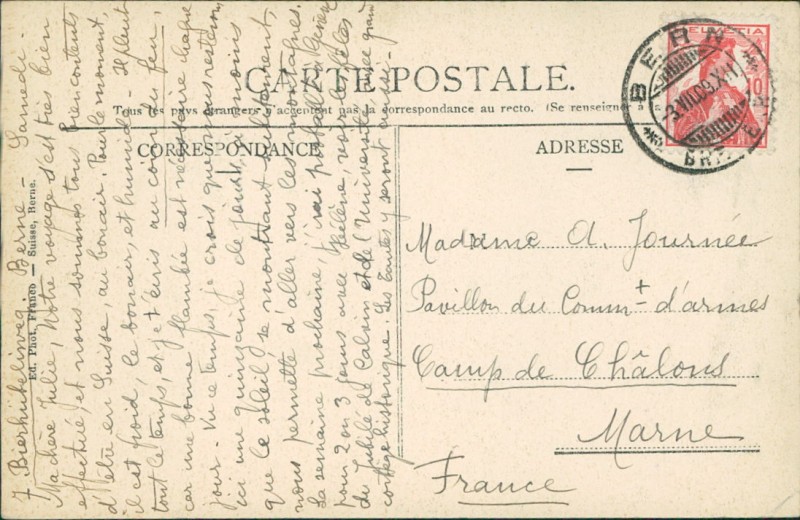 CARTE POSTALE.
Tous les pays étrangers n'acceptent pas la correspondance au recto. (Se renseigner à la
CORRESPONDANCE
ADRESSE
HELVETIA
10
BERN
3.VII.09.X
BRF. EX
Madame A. Journée
Pavillon du Commt d'armes
Camp de Châlons
Marne
France
Ed. Phot. Franco — Suisse, Berne.
7 Bierhübeliweg. Berne - Samedi -
Ma chère Julie, Notre voyage s'est très bien
effectué, et nous sommes tous bien contents
d'être en Suisse, au bon air. Pour le moment,
il est froid, le bon air, et humide - Il pleut
tout le temps, et je t'écris au coin du feu,
car une bonne flambée est nécessaire chaque
jour - Vu ce temps, je crois que nous resterons
ici une quinzaine de jours, à moins
que le soleil, se montrant subitement,
nous permette d'aller vers les montagnes.
La semaine prochaine, j'irai probablt à Genève
pour 2 ou 3 jours avec Hélène, voir les fêtes
du Jubilé de Calvin et de l'Université, avec grand
cortège historique. Les Tantes y seront aussi -